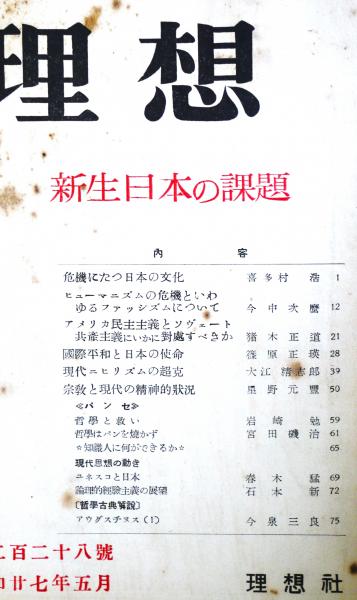 理想
新生日本の課題
內容
危機にたつ日本の文化 喜多村浩 1
ヒューマニズムの危機といわ
ゆるファッシズムについて 今中次麿 12
アメリカ民主主義とソヴェート
共產主義にいかに對處すべきか 猪木正道 21
國際平和と日本の使命 篠原正瑛 28
現代ニヒリズムの超克 大江精志郎 39
宗敎と現代の精神的狀況 星野元豐 50
≪パンセ≫
哲學と救い 岩崎勉 59
哲學はパンを燒かず 宮田磯治 61
☆知識人に何ができるか☆ 65
現代思想の動き
ユネスコと日本 春木猛 69
論理的經驗主義の展望 石本新 72
〔哲學古典解說〕
アウグスチヌス(1) 今泉三良 75
二百二十八號
和廿七年五月
理想社